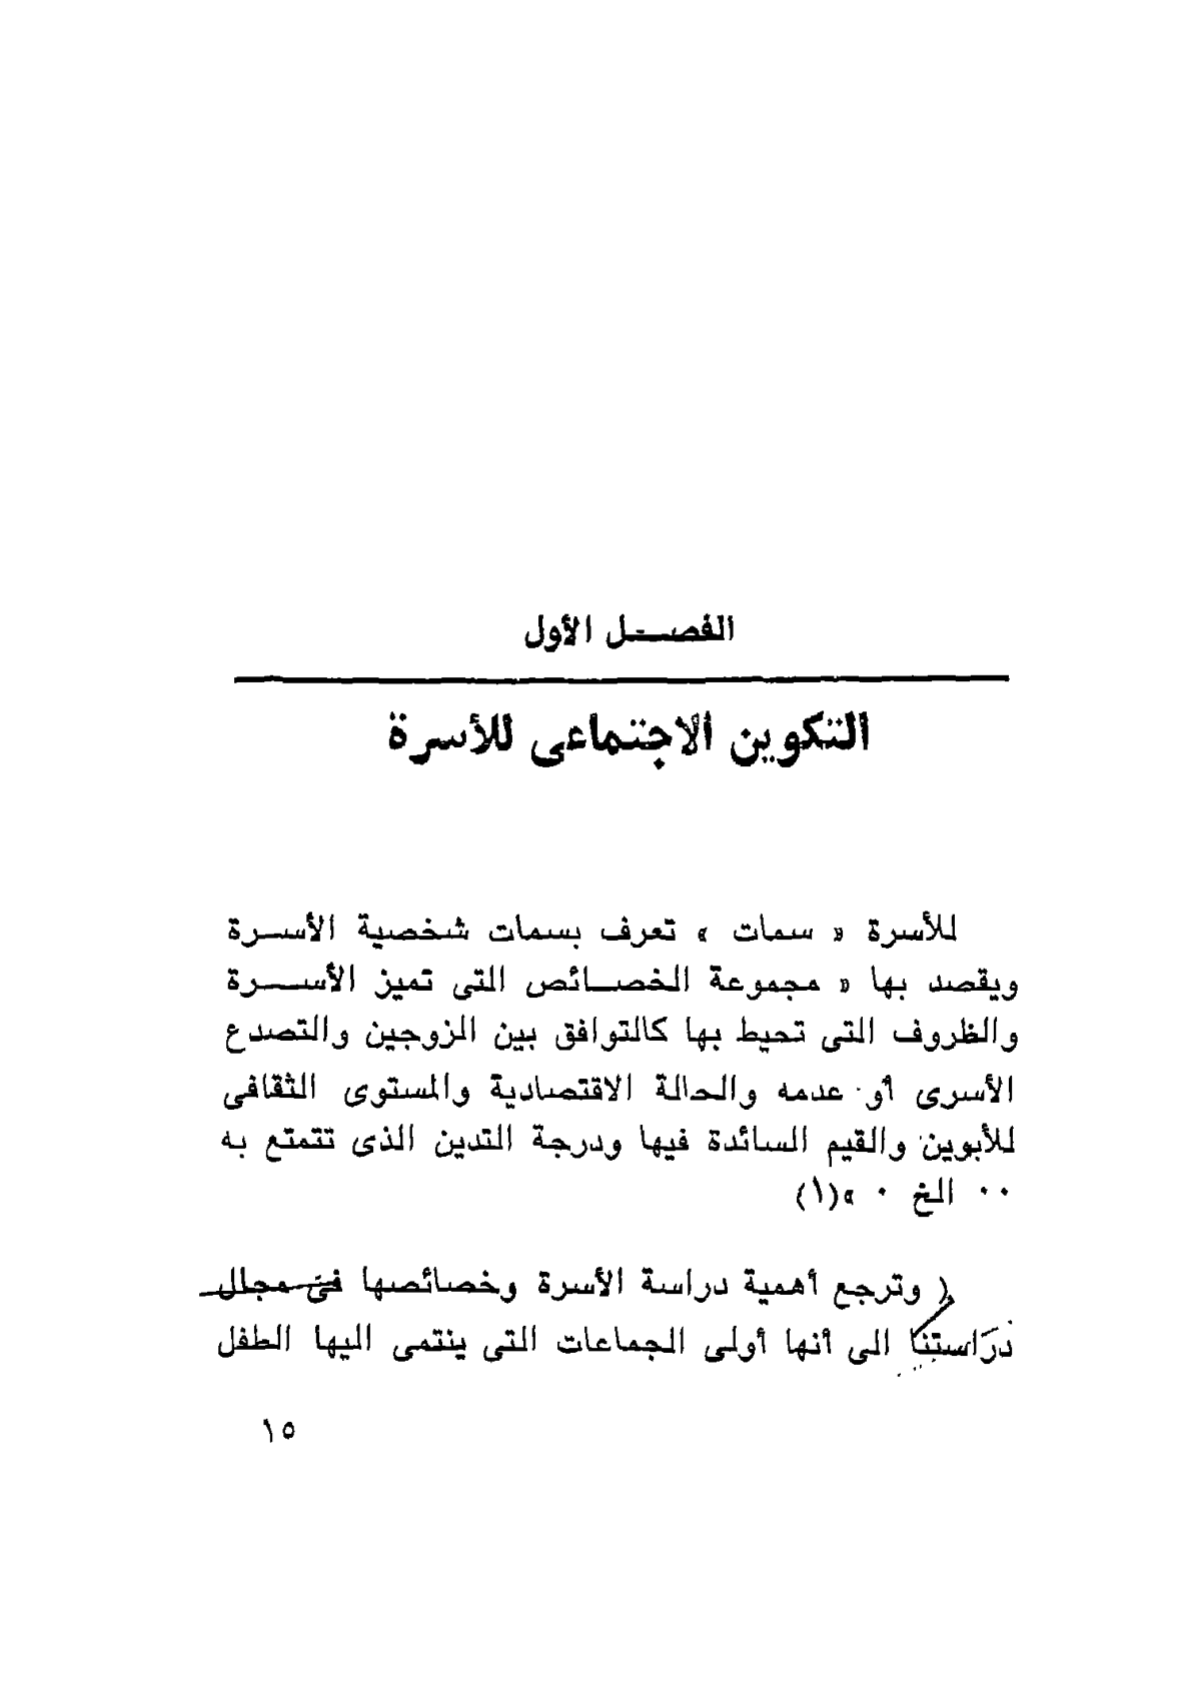 الفصل الأول
التكوين الاجتماعى للأسرة
للأسرة « سمات » تعرف بسمات شخصية الأسرة
ويقصد بها « مجموعة الخصائص التى تميز الأسرة
والظروف التى تحيط بها كالتوافق بين الزوجين والتصدع
الأسرى أو عدمه والحالة الاقتصادية والمستوى الثقافى
للأبوين والقيم السائدة فيها ودرجة التدين الذى تتمتع به
٠٠ الخ ٠ »(١)
( وترجع أهمية دراسة الأسرة وخصائصها فى مجال
دراستنا الى أنها أولى الجماعات التى ينتمى اليها الطفل
١٥